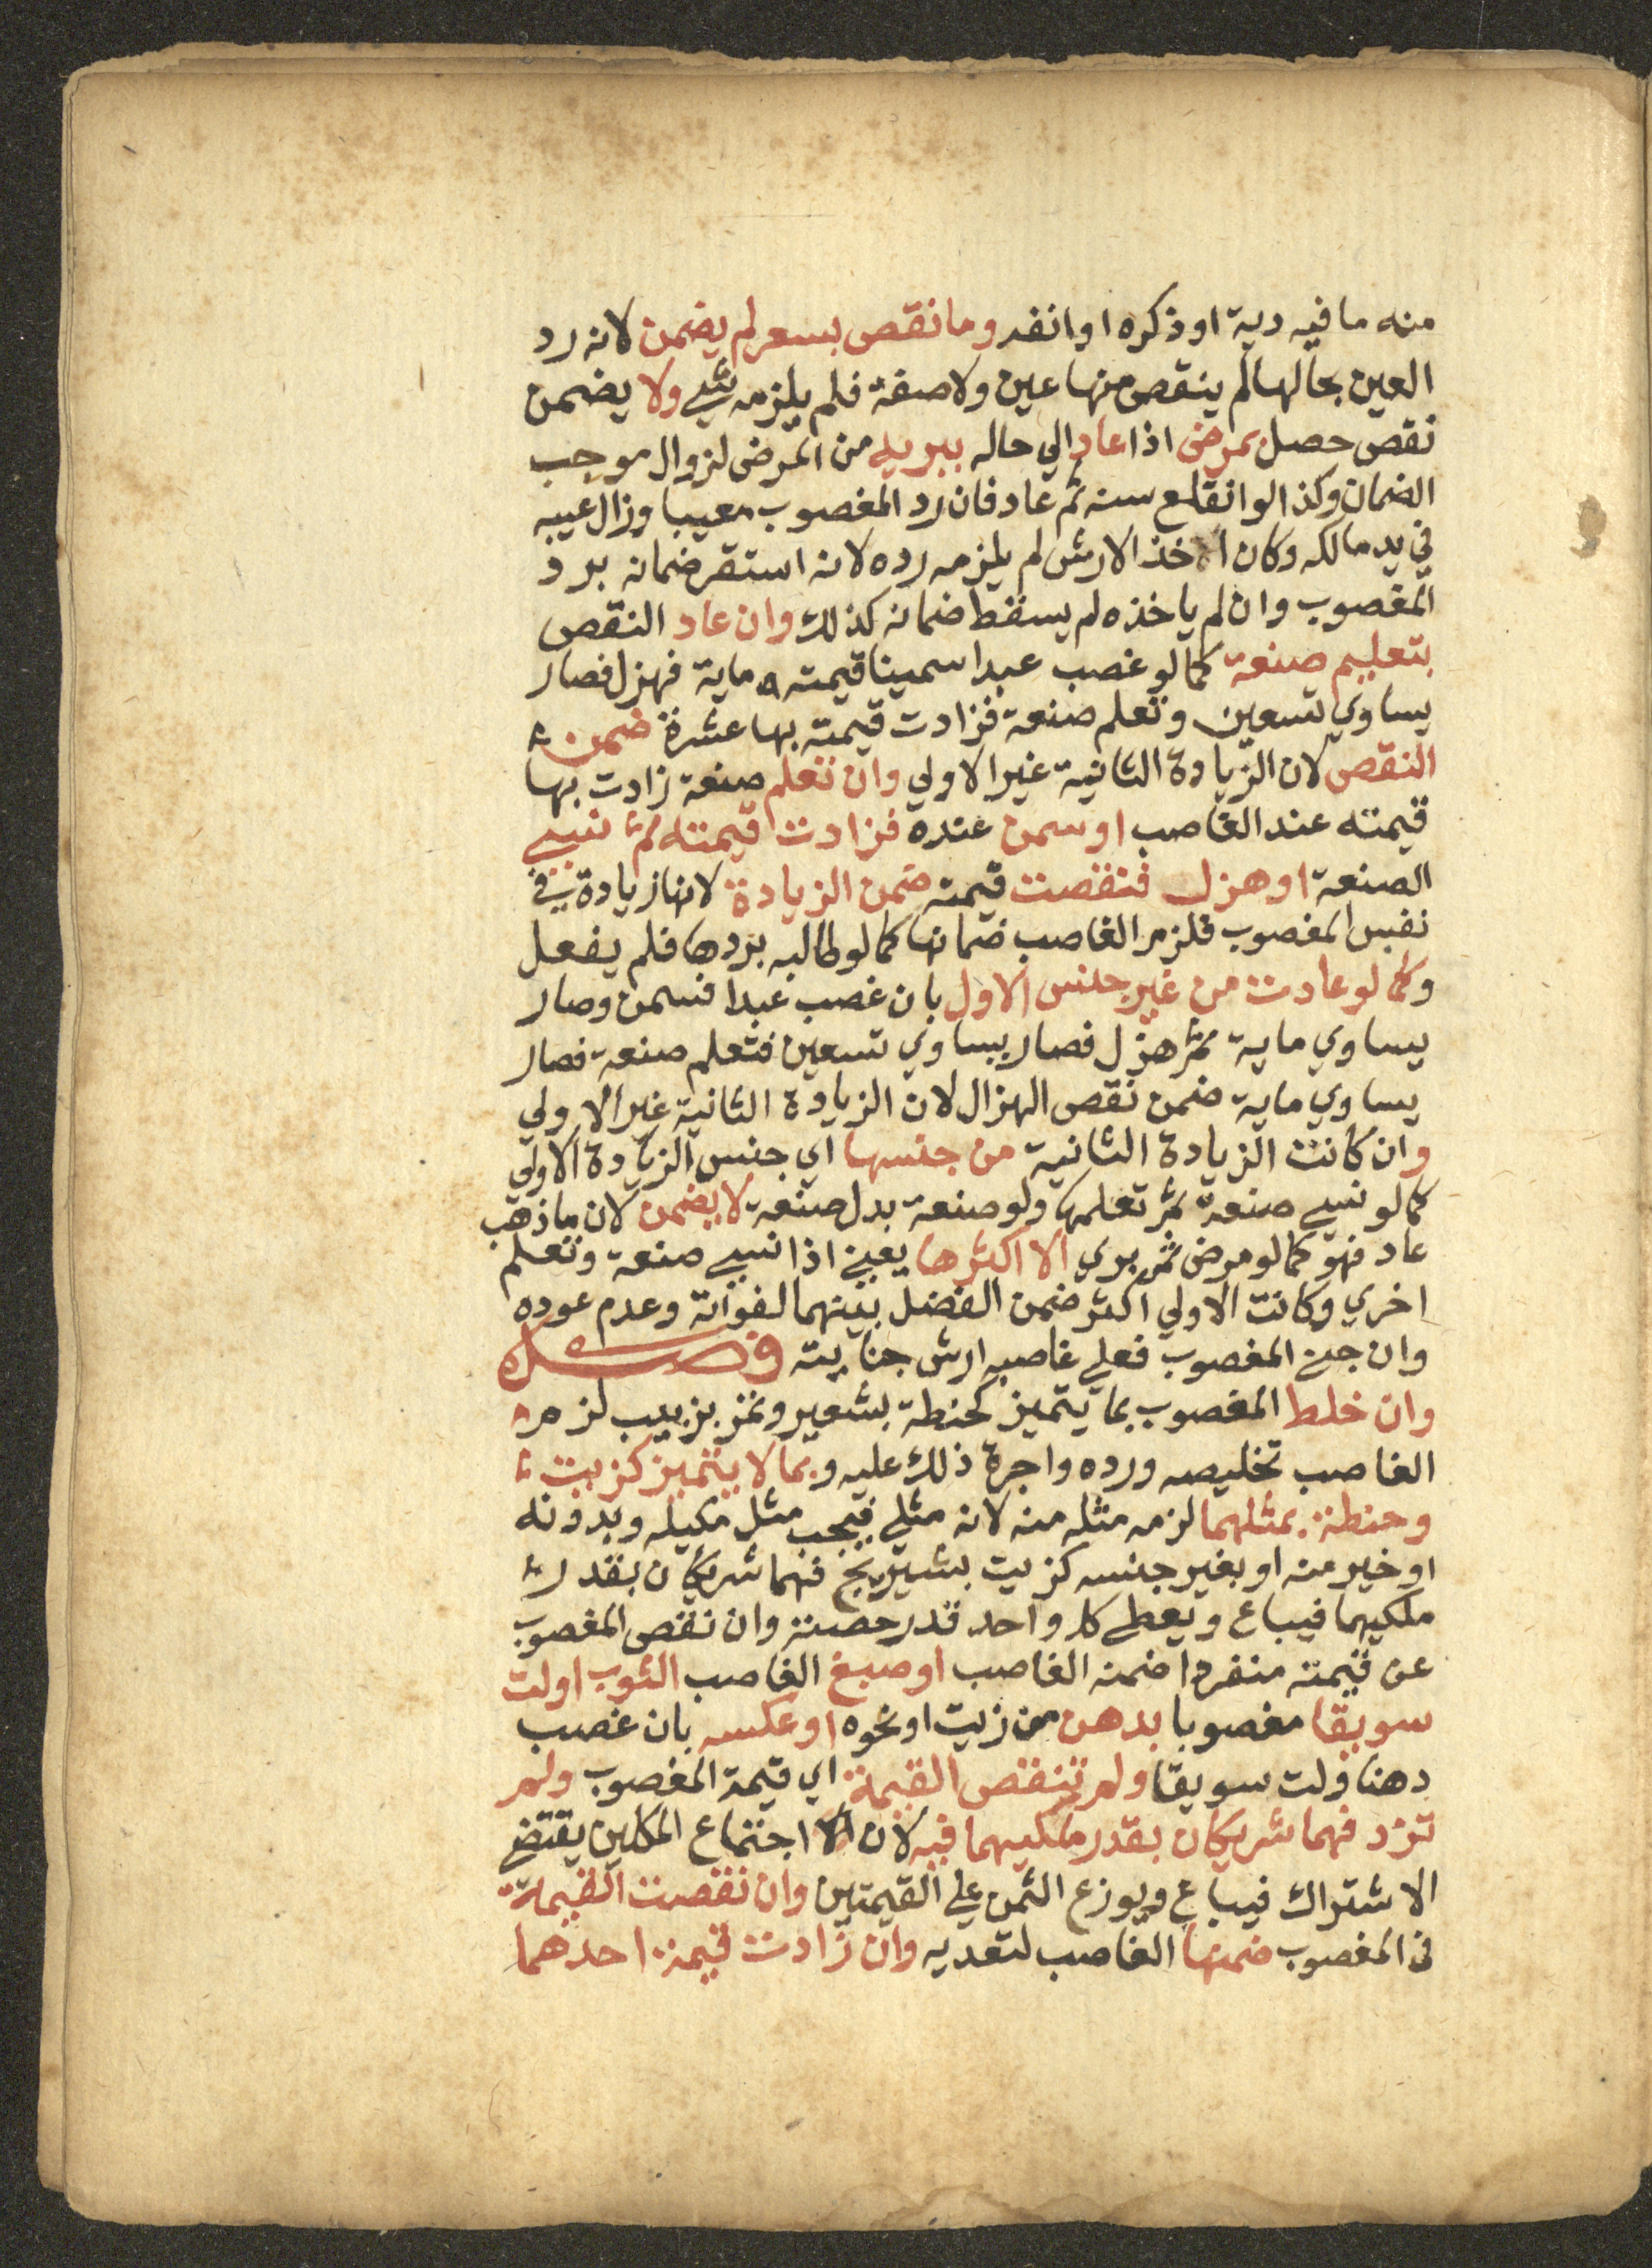 منه ما فيه دية او ذكره او انفه وما نقص بسعر لم يضمن لانه رد
العين بحالها لم ينقص منها عين ولا صفة فلم يلزمه شي ولا يضمن
نقص حصل بمرض اذا عاد الي حاله ببريه من المرض لزوال موجب
الضمان وكذا لو انقلع سنه ثم عاد فان رد المغصوب معيبا وزال عيبه
في يد مالكه وكان اخذ الارش لم يلزمه رده لانه استقر ضمانه برد
المغصوب وان لم ياخذه لم يسقط ضمانه كذلك وان عاد النقص
بتعليم صنعة كما لو غصب عبدا سمينا قيمته ماية فهزل فصار
يساوي تسعين وتعلم صنعة فزادت قيمته بها عشرة ضمن
النقص لان الزيادة الثانية غير الاولي وان تعلم صنعة زادت بها
قيمته عند الغاصب او سمن عنده فزادت قيمته ثم نسي
الصنعة او هزل فنقصت قيمته ضمن الزيادة لانها زيادة في
نفس المغصوب فلزم الغاصب ضمانها كما لو طالبه بردها فلم يفعل
وكما لو عادت من غير جنس الاول بان غصب عبدا فسمن وصار
يساوي ماية ثم هزل فصار يساوي تسعين فتعلم صنعة فصار
يساوي ماية ضمن نقص الهزال لان الزيادة الثانية غير الاولي
وان كانت الزيادة الثانية من جنسها اي جنس الزيادة الاولي
كما لو نسي صنعة ثم تعلمها ولو صنعة بدل صنعة لا يضمن لان ما ذهب
عاد فهو كما لو مرض ثم بري الا اكثرها يعني اذا نسي صنعة وتعلم
اخري وكانت الاولي اكثر ضمن الفضل بينهما لفواته وعدم عوده
وان جني المغصوب فعلي غاصبه ارش جنايته فصل
وان خلط المغصوب بما يتميز كحنطة بشعير وتمر بزبيب لزم
الغاصب تخليصه ورده واجرة ذلك عليه وبما لا يتميز كزيت
وحنطة بمثلهما لزمه مثله منه لانه مثلي فيجب مثل مكيله وبدونه
او خير منه او بغير جنسه كزيت بشيريج فهما شريكان بقدر
ملكيهما فيباع ويعطي كل واحد قدر حصته وان نقص المغصوب
عن قيمته منفردا ضمنه الغاصب او صبغ الغاصب الثوب او لت
سويقا مغصوبا بدهن من زيت او نحوه او عكسه بان غصب
دهنا ولت سويقا ولم تنقص القيمة اي قيمة المغصوب ولم
تزد فهما شريكان بقدر ملكيهما فيه لان اجتماع الملكين يقتضي
الاشتراك فيباع ويوزع الثمن علي القيمتين وان نقصت القيمة
في المغصوب ضمنها الغاصب لتعديه وان زادت قيمة احدهما